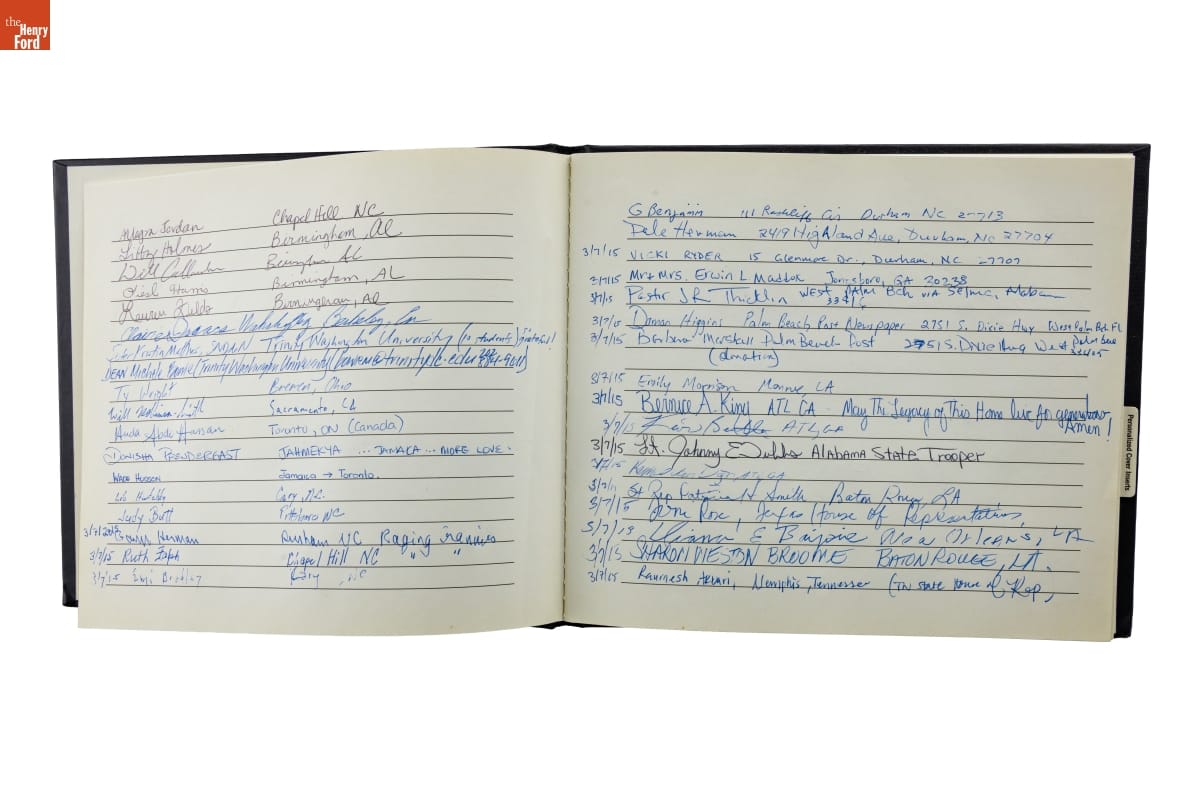 the
Henry
Ford
Jordan Chapel Hill NC
Holmes Birmingham, AL
Will Birmingham AL
Birmingham, AL
Lauren Birmingham, AL
Claire Berkeley, Ca
Sr. Kristin SNDdeN Trinity Washington University (10 students) grateful!
DEAN Michele (Trinity Washington University)
Ty Wright Bremen, Ohio
Will Sacramento, CA
Huda Hassan Toronto, ON (Canada)
DONISHA PRENDERGAST JAHMEKYA ... JAMAICA ... MORE LOVE.
WADE HUDSON JAMAICA → TORONTO.
Cary, N.C.
Judy Butt Pittsboro NC
3/7/2015 Herman Durham NC Raging Grannies
3/7/15 Ruth Chapel Hill NC " "
3/7/15 Cary, NC
G Benjamin 111 Cir Durham NC 27713
Dele Herman 2419 Highland Ave, Durham, NC 27704
3/7/15 VICKI RYDER 15 Glenmore Dr., Durham, NC 27707
3/7/15 Mr & Mrs. Erwin L Maddox Jonesboro, GA 30238
3/7/15 Pastor JR Thicklin WEST PALM Bch via Selma, Alabama
33416
3/7/15 Damon Higgins Palm Beach Post Newspaper 2751 S. Dixie Hwy West Palm Bch FL
3/7/15 Barbara Marshall Palm Beach Post 2751 S. Dixie Hwy West Palm
33405
(donation)
3/7/15 Emily Morrison Monroe, LA
3/7/15 Bernice A. King ATL GA - May The Legacy of This Home live for generations
Amen!
3/7/15 ATL, GA
3/7/15 Lt. Johnny E Dubbs ALABAMA STATE TROOPER
3/7/15
3/7/15 St Rep Patricia H Smith Baton Rouge, LA
3/7/15 Rose, Texas House of Representatives,
3/7/15 E New Orleans, LA
3/7/15 SHARON WESTON BROOME BATON ROUGE, LA.
3/7/15 Raumesh Akbari, Memphis, Tennessee (TN State House of Rep,
Personalized Cover Inserts